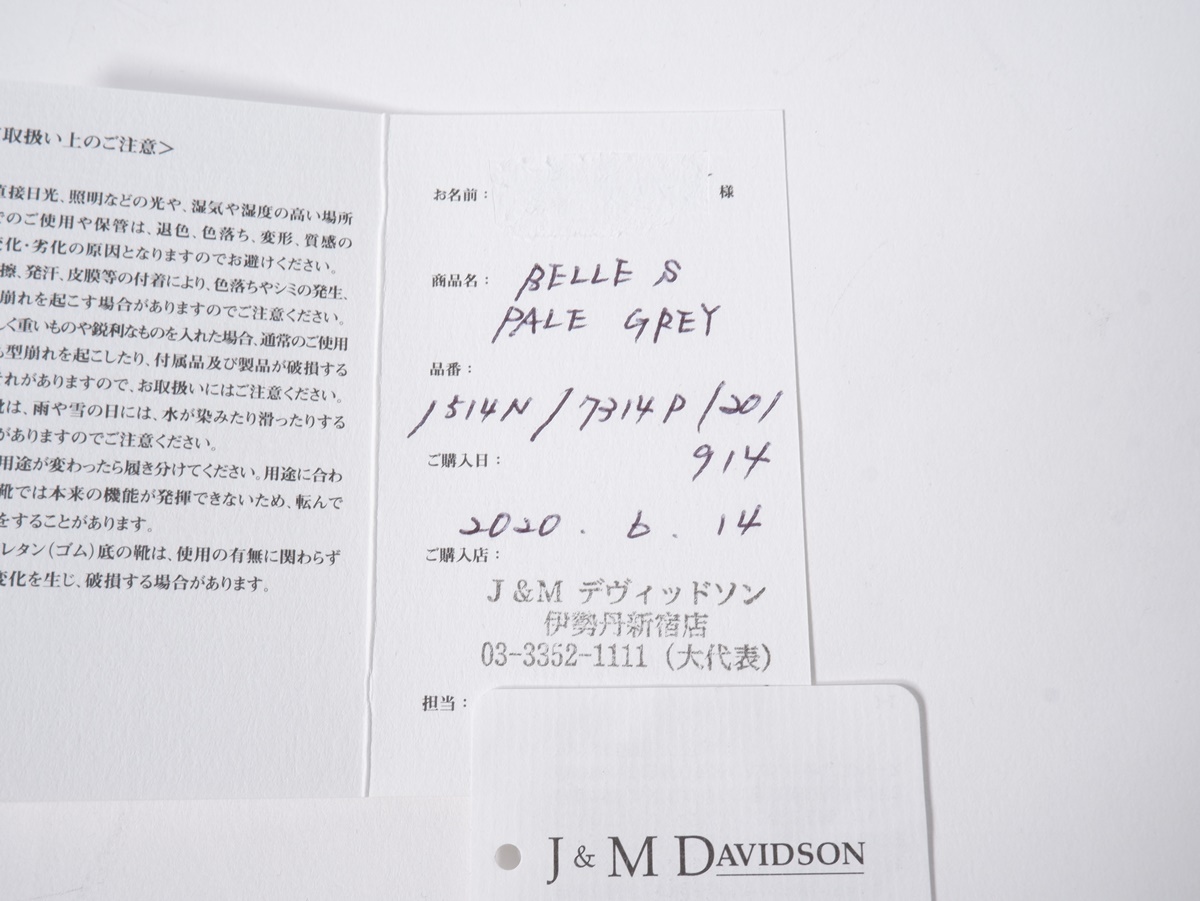 取扱い上のご注意>
直接日光、照明などの光や、湿気や湿度の高い場所
でのご使用や保管は、退色、色落ち、変形、質感の
変化・劣化の原因となりますのでお避けください。
擦、発汗、皮膜等の付着により、色落ちやシミの発生、
崩れを起こす場合がありますのでご注意ください。
しく重いものや鋭利なものを入れた場合、通常のご使用
も型崩れを起こしたり、付属品及び製品が破損する
それがありますので、お取扱いにはご注意ください。
靴は、雨や雪の日には、水が染みたり滑ったりする
がありますのでご注意ください。
用途が変わったら履き分けてください。用途に合わ
靴では本来の機能が発揮できないため、転んで
をすることがあります。
レタン(ゴム)底の靴は、使用の有無に関わらず
変化を生じ、破損する場合があります。
お名前: 様
商品名: BELLE S
PALE GREY
品番:
1514N/7314P/201
914
ご購入日:
2020. 6. 14
ご購入店:
J&M デヴィッドソン
伊勢丹新宿店
03-3352-1111 (大代表)
担当:
J & M DAVIDSON